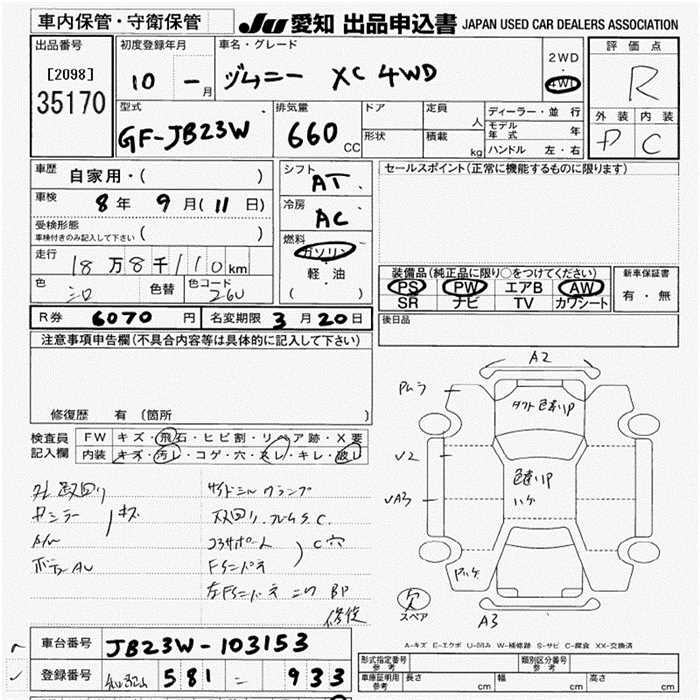 車内保管・守衛保管
JU 愛知 出品申込書 JAPAN USED CAR DEALERS ASSOCIATION
出品番号
[2098]
35170
初度登録年月
10 - 月
車名・グレード
ヅムニー XC 4WD
2WD
・
4WD
評価点
R
外装 内装
P C
型式
GF-JB23W
排気量
660 CC
ドア
形状
定員 人
積載 kg
ディーラー・並行
モデル年式 年
ハンドル 左・右
車歴
自家用・( )
車検 8年 9月(11日)
受検形態
車検付きのみ記入して下さい ( )
走行
18万8千110km
色
シロ
色替
色コード
26U
シフト
AT
冷房
AC
燃料
ガソリン
・
軽・油
( )
セールスポイント(正常に機能するものに限ります)
装備品(純正品に限り○をつけてください)
PS PW エアB AW
SR ナビ TV カワシート
新車保証書
有・無
R券 6070 円 名変期限 3月20日
後日品
注意事項申告欄(不具合内容等は具体的に記入して下さい)
修復歴 有 (箇所 )
検査員
記入欄
FW キズ・飛石・ヒビ割・リペア跡・X要
内装 キズ・汚レ・コゲ・穴・スレ・キレ・破レ
サイドシルクランプ
C穴
BP
修復
A2
色違いP
√2
色違いP
ハゲ
√A3
Pハゲ
欠
スペア
A3
A-キズ E-エクボ U-凹み W-補修跡 S-サビ C-腐食 XX-交換済
車台番号 JB23W-103153
登録番号 581 - 933
型式指定番号
参考
類別区分番号
参考
車庫証明用
参考
長さ cm 幅 cm 高さ cm